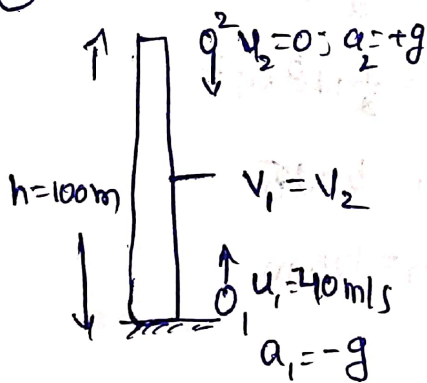 2 u₂=0; a₂=+g
h=100m
V₁ = V₂
1 u₁=40m/s
a₁=-g